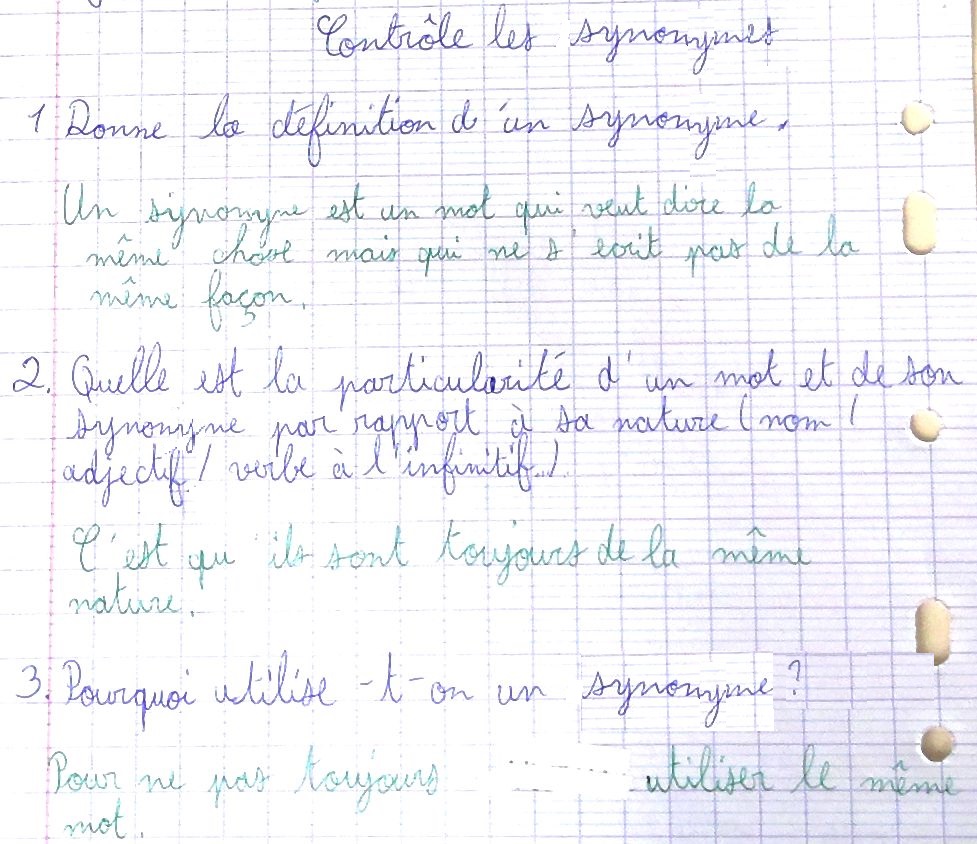 Contrôle les synonymes
1 Donne la définition d'un synonyme.
Un synonyme est un mot qui veut dire la
même chose mais qui ne s'ecrit pas de la
même façon.
2. Quelle est la particularité d'un mot et de son
synonyme par rapport à sa nature (nom /
adjectif / verbe à l'infinitif..)
C'est qu'ils sont toujours de la même
nature.
3. Pourquoi utilise-t-on un synonyme ?
Pour ne pas toujours utiliser le même
mot.